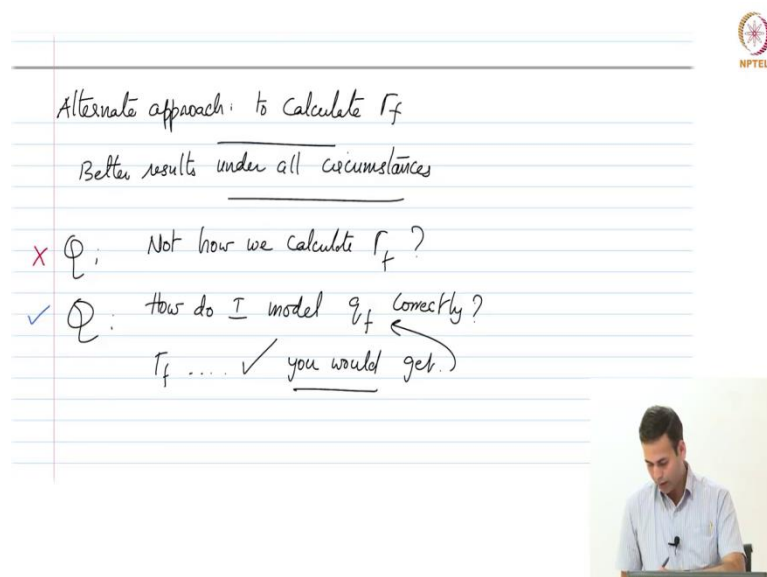 NPTEL
Alternate approach: to calculate Γf
Better results under all circumstances
✗ Q: Not how we calculate Γf ?
✓ Q: How do I model qf correctly?
Γf .... ✓ you would get.